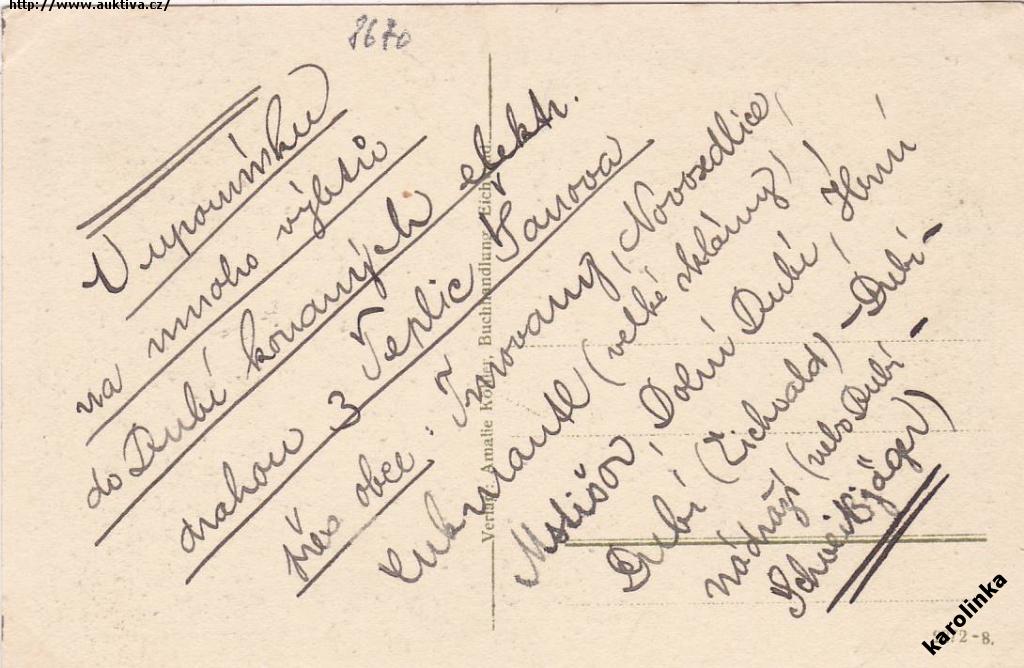 http://www.auktiva.cz/
8670
V upomínku
na mnoho výletů
do Dubí konaných elektr.
drahou z Teplic Šanova
přes obce: Trnovany, Novosedlice,
(velké sklárny)
Mstišov, Dolní Dubí, Horní
Dubí (Eichwald) – Dubí –
nádraží (nebo Dubí –
Schweißjäger)
Verlag: Amalie Buchhandlung, Eichwald
karolinka